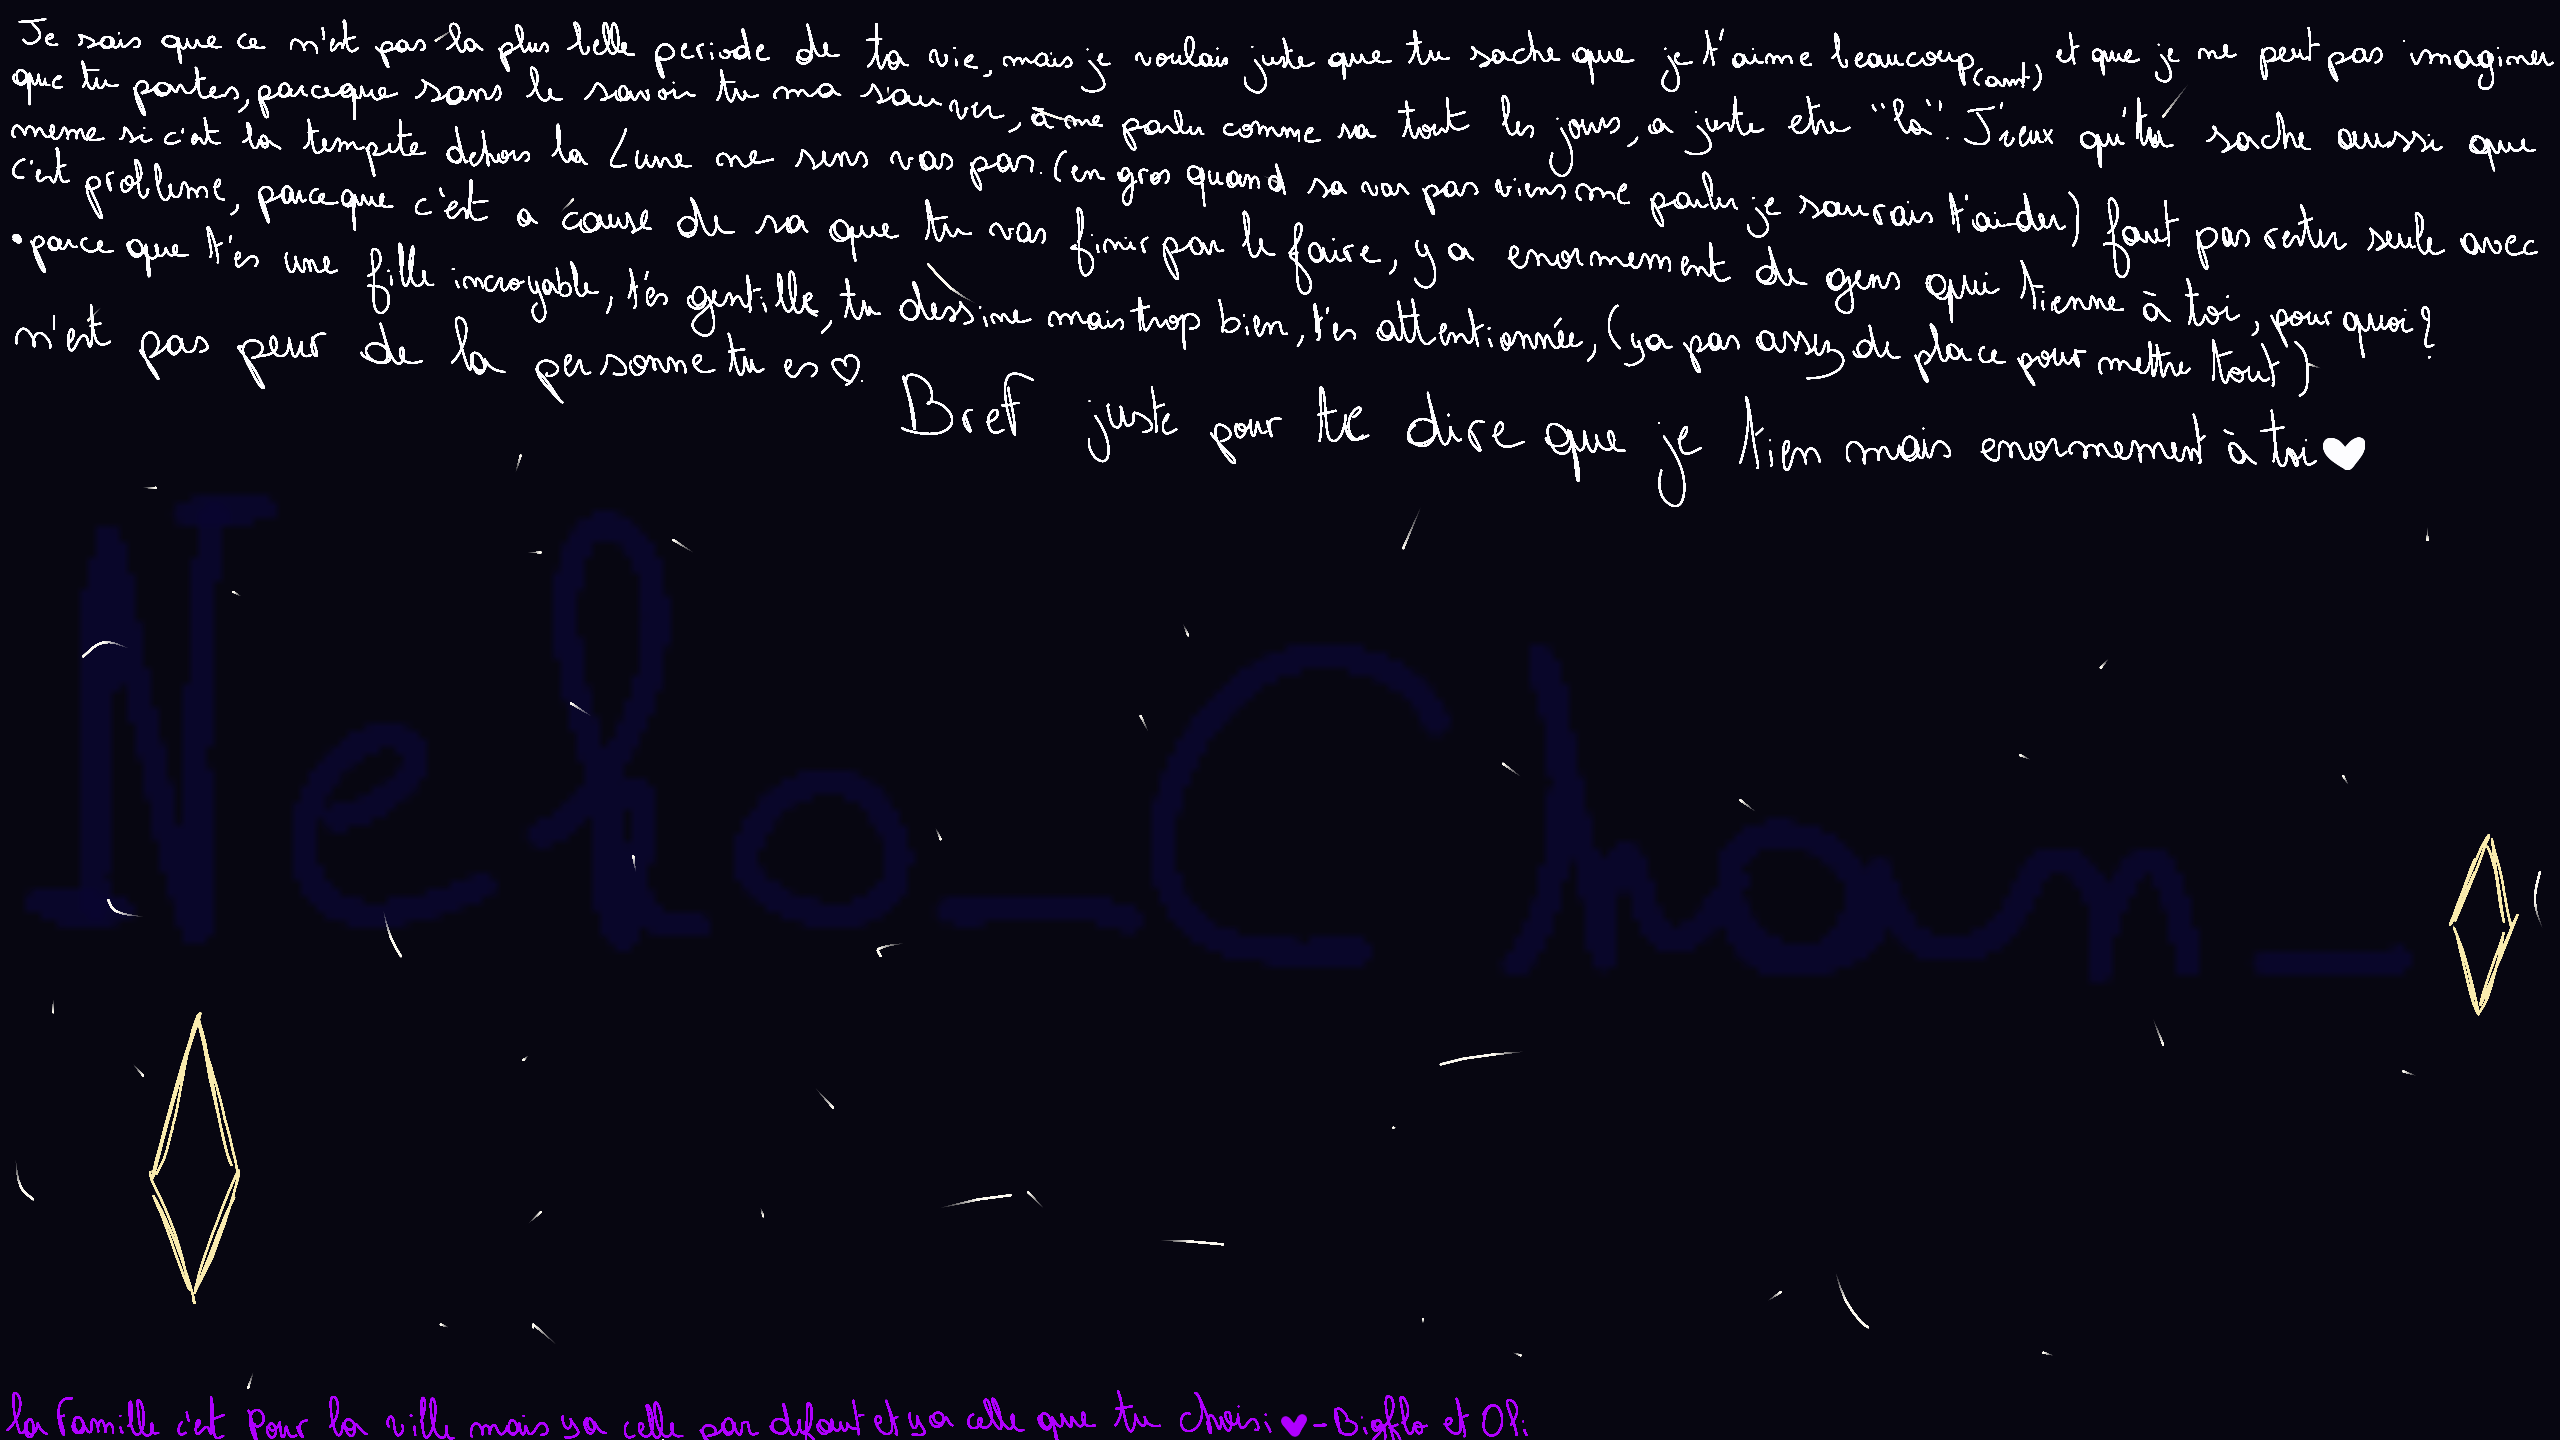 Je sais que ce n'est pas la plus belle periode de ta vie, mais je voulais juste que tu sache que je t'aime beaucoup (amt), et que je ne peut pas imaginer
que tu partes, parceque sans le savoir tu ma sauver, a me parler comme sa tout les jours, a juste etre "la". J'veux qu'tu sache aussi que
meme si c'est la tempete dehors la Lune ne sens vas pas. (en gros quand sa vas pas viens me parler je saurais t'aider) faut pas rester seule avec
c'est probleme, parceque c'est a cause de sa que tu vas finir par le faire, y a enormement de gens qui tienne à toi, pourquoi?
•parce que t'es une fille incroyable, t'es gentille, tu dessine mais trop bien, t'es attentionnée, (ya pas assez de place pour mettre tout)
n'est pas peur de la personne tu es ♡
Bref juste pour te dire que je tien mais enormement à toi ♥
Neko_Chan_
la Famille c'est pour la ville mais ya celle par defaut et ya celle que tu choisi ♥ - Bigflo et Oli